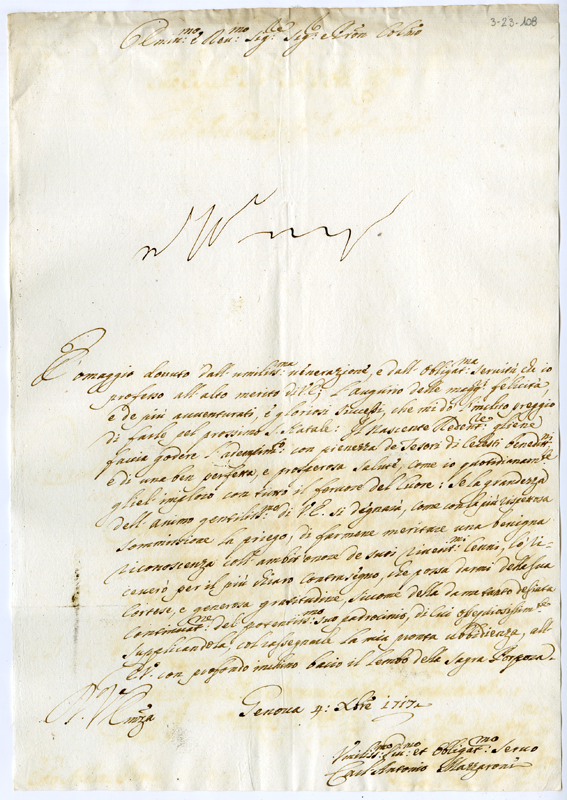 3-23-108
Emin:mo e Rev:mo Sig:re Sig:r e Pron Colmo
È omaggio dovuto dall'umiliss:ma venerazione, e dall'obligat:ma servitù che io
professo all'alto merito di V.E; l'augurio delle magg:ri felicità
e de più avventurati, e gloriosi successi, che mi dò l'inclito preggio
di farle pel prossimo S. Natale: Il Nascente Redent:re gliene
facia godere l'adempim:to con pienezza de Tesori di Celesti benediz:ni
e di una ben perfetta, e prosperosa salute, come io quotidianam:te
gliel'imploro con tutto il fervore del Cuore: Se la grandezza
dell'animo gentiliss:mo di V.E. si degnarà, come con la più rispettosa
sommissione la priego, di farmene meritare una benigna
riconoscenza coll'ambit'onore de suoi riveriti:mi Cenni, lo ri-
ceverò per il più chiaro contrasegno, che possa darmi della sua
Cortese, e generosa gratitudine, siccome della da me tanto desiata
Continuat:ne del potentiss:mo suo padrocinio, di cui ossequiosissim:te
supplicandola, col rassegnarle la mia pronta ubbidienza, all'
E.V. con profondo inchino bacio il lembo della Sagra Porpora.
D. V.ra Emza
Genova 4: Xbre 1717
Umiliss:mo Div:mo et Obligat:mo Servo
Antonio Mazzaroni